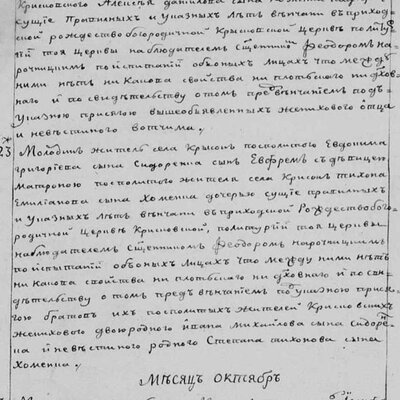 Крисковского Алексея данилова сына
сущие Правилныхъ и Указныхъ лѣтъ венчани въ приход
ской рождество богородичной Крысковской Церкве политур
гіи тоя Церквы наблюдателемъ Сщенникомъ Феодоромъ На
рочницкимъ по испытаніи обоьыхъ лицахъ что между
ними нетъ ни какова свойства ни плотскаго ни духов
наго и по свидетельству о томъ предъ венчаніемъ подъ
Указною присягою вышеобъявленныхъ женихового отца
и невестиного вотчима,
23 Молодикъ жителя села Крысокъ посполитого Евдокима
григоріева сына Сидоренка сынъ Евфремъ съ девицею
Матроною посполитого жителя села Крисокъ тихона
Емиліанова сына Хоменка дочерью сущіе правилныхъ
и Указныхъ летъ венчани въ приходской Рождество бого
родичной Церкве Крисковской, политургіи тоя Церквы
наблюдателемъ Сщенникомъ Феодоромъ Нарочницкимъ
по испытаніи обоьыхъ лицахъ что между ними нетъ
ни какова свойства ни плотскаго ни духовнаго и по сви
детелству о томъ предъ венчаніемъ под указною прися
гою братовъ ихъ посполитыхъ жителей Крисковскихъ
женихового двоюродного ивана Михайлова сына Сидоре
нка и невестиного родного Стефана тихонова сына
Хоменка,
Мѣсяцъ октябрь